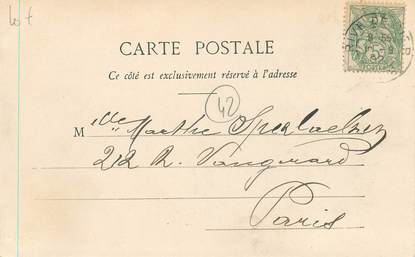 Lot
CARTE POSTALE
Ce côté est exclusivement réservé à l'adresse
42
Mlle Marthe
212 R. Vaugirard
Paris